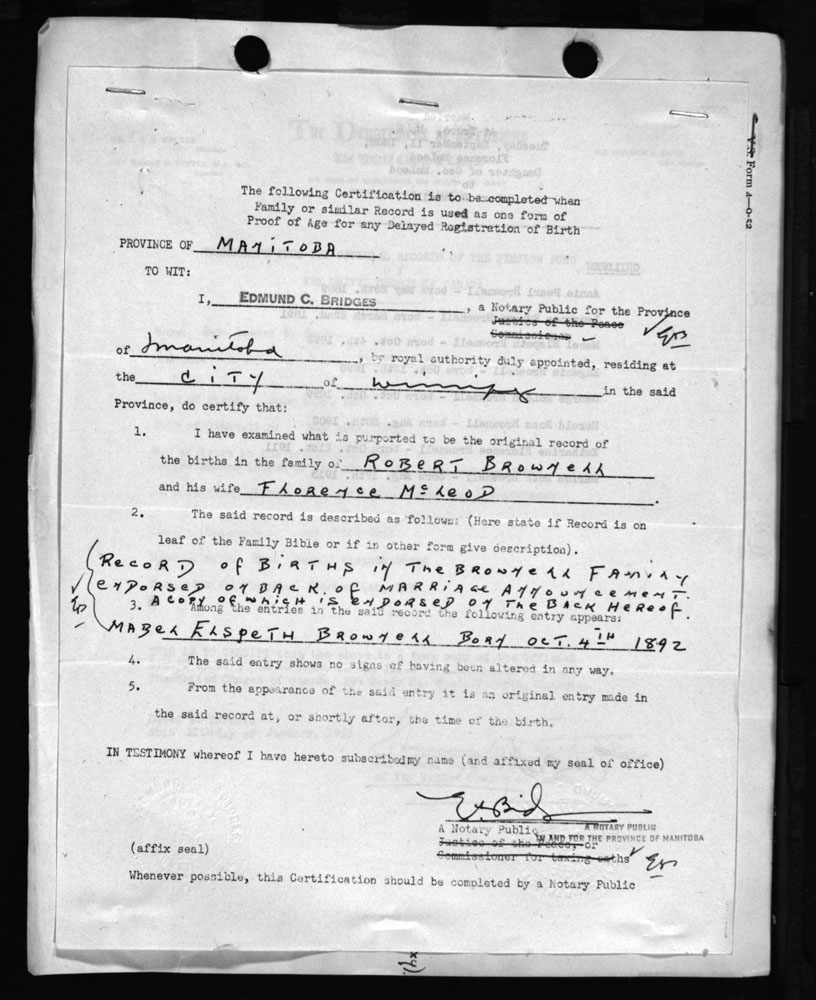 The following Certification is to be completed when
Family or similar Record is used as one form of
Proof of Age for any Delayed Registration of Birth
V.S. Form 4—0-52
PROVINCE OF MANITOBA
TO WIT:
I, EDMUND C. BRIDGES, a Notary Public for the Province
Justice of the Peace
Commissioner
of Manitoba, by royal authority duly appointed, residing at
the CITY of Winnipeg in the said
Province, do certify that:
1. I have examined what is purported to be the original record of
the births in the family of ROBERT BROWNELL
and his wife FLORENCE McLEOD.
2. The said record is described as follows: (Here state if Record is on
leaf of the Family Bible or if in other form give description).
RECORD OF BIRTHS IN THE BROWNELL FAMILY
ENDORSED ON BACK OF MARRIAGE ANNOUNCEMENT.
A COPY OF WHICH IS ENDORSED ON THE BACK HEREOF.
3. Among the entries in the said record the following entry appears:
MABEL ELSPETH BROWNELL BORN OCT. 4TH 1892
4. The said entry shows no signs of having been altered in any way.
5. From the appearance of the said entry it is an original entry made in
the said record at, or shortly after, the time of the birth.
IN TESTIMONY whereof I have hereto subscribed my name (and affixed my seal of office)
A Notary Public A NOTARY PUBLIC
IN AND FOR THE PROVINCE OF MANITOBA
Justice of the Peace, or
(affix seal)
Commissioner for taking oaths
Whenever possible, this Certification should be completed by a Notary Public